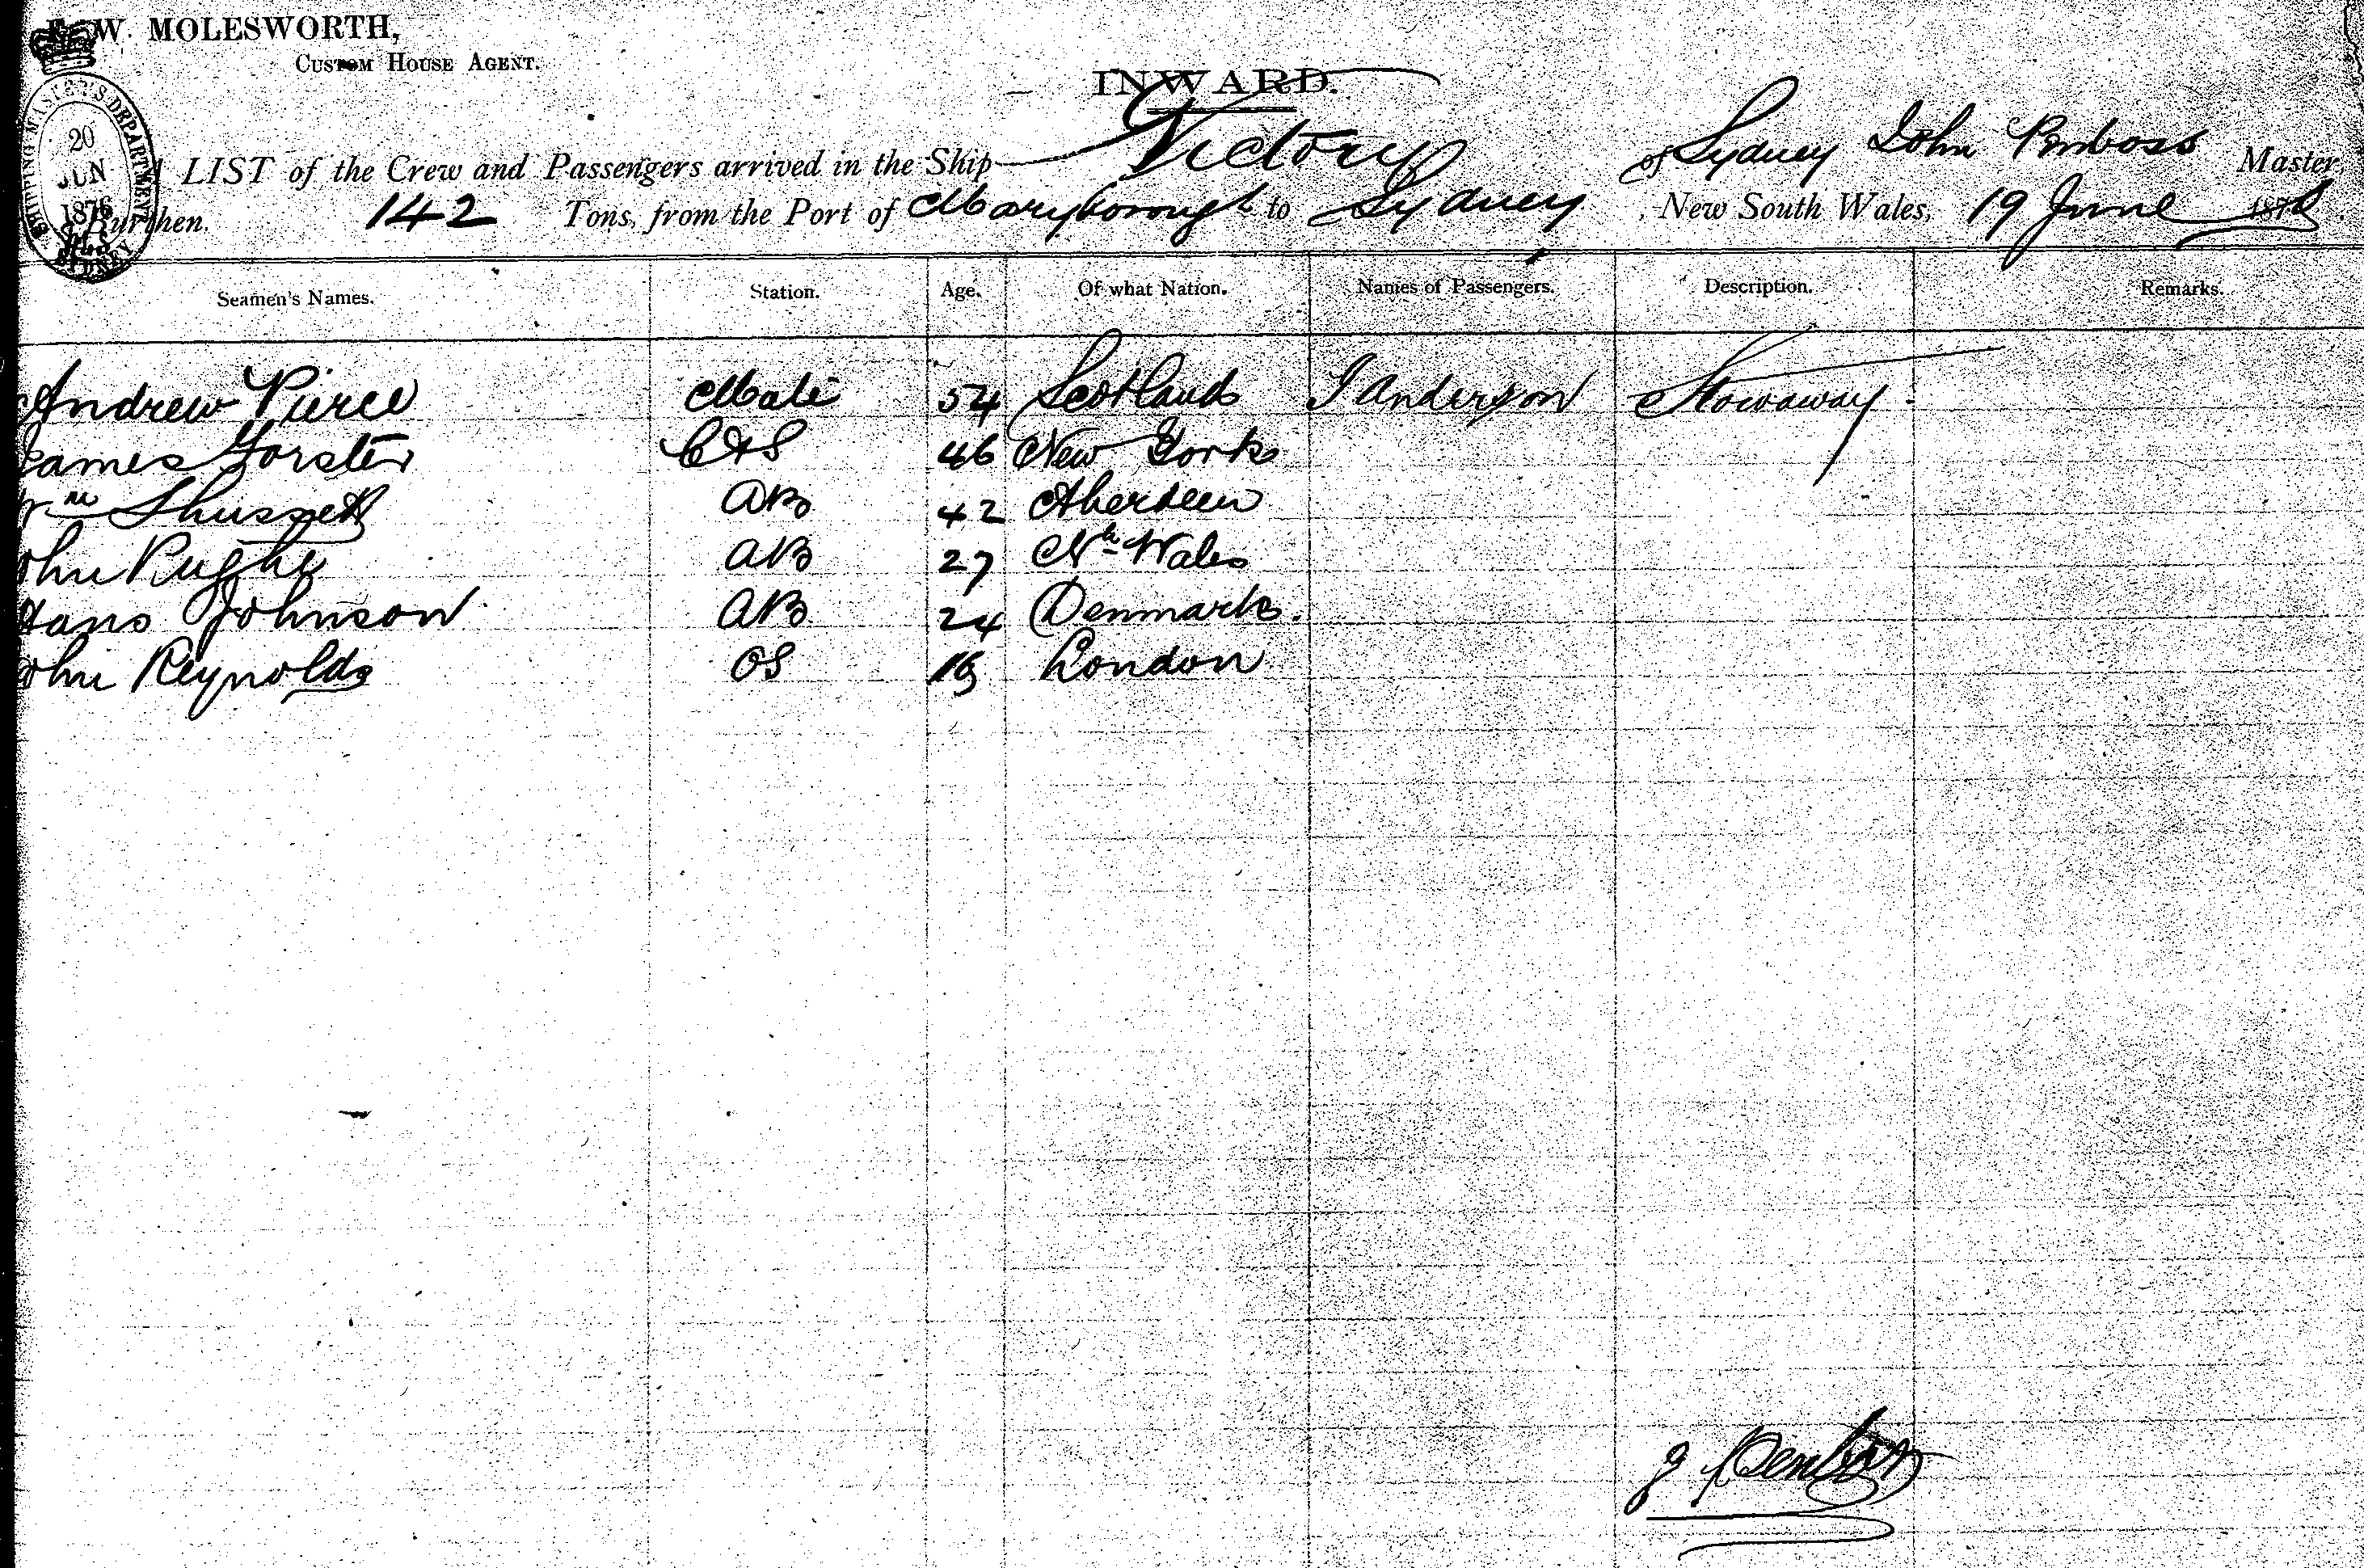 W. MOLESWORTH,
CUSTOM HOUSE AGENT.
SHIPPING MASTER'S DEPARTMENT SYDNEY
20
JUN
1876
INWARD.
LIST of the Crew and Passengers arrived in the Ship Victory of Sydney John Master,
Burthen. 142 Tons, from the Port of Maryborough to Sydney, New South Wales, 19 June 1876
Seamen's Names. Station. Age. Of what Nation. Names of Passengers. Description. Remarks.
Andrew Pierce Mate 54 Scotland J Anderson Stowaway.
James Forster C&S 46 New York
Wm 42 AB Aberdeen
John Pughe AB 27 Nh Wales
Hans Johnson AB 24 Denmark.
John Reynolds OS London